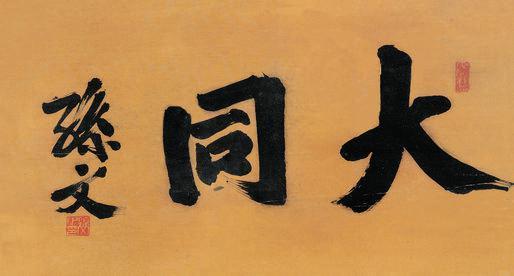 大同
孫文